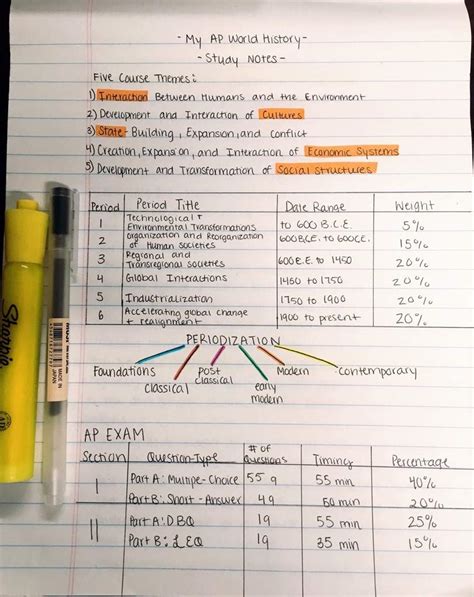 - My AP World History -
- Study Notes -
Five Course Themes:
1) Interaction Between Humans and the Environment
2) Development and Interaction of Cultures
3) State-Building, Expansion, and Conflict
4) Creation, Expansion, and Interaction of Economic Systems
5) Development and Transformation of Social Structures
Period Period Title Date Range Weight
1 Technological + Environmental Transformations to 600 B.C.E. 5%
2 Organization and Reorganization of Human Societies 600 B.C.E. to 600 C.E. 15%
3 Regional and Transregional Societies 600 E.E. to 1450 20%
4 Global Interactions 1450 to 1750 20%
5 Industrialization 1750 to 1900 20%
6 Accelerating global change + realignment 1900 to present 20%
PERIODIZATION
Foundations classical post classical early modern Modern contemporary
AP EXAM
Section Question-Type # of Questions Timing Percentage
I Part A: Multipe-Choice 55 q 55 min 40%
Part B: Short-Answer 4q 50 min 20%
II Part A: DBQ 1q 55 min 25%
Part B: LEQ 1q 35 min 15%
Sharpie
MADE IN JAPAN